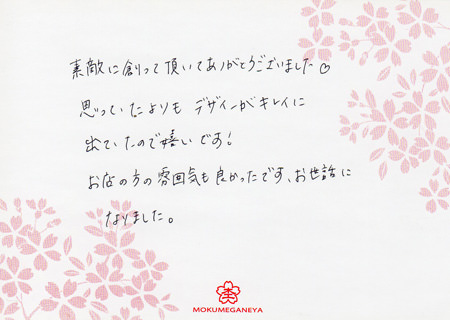 素敵に創って頂いてありがとうございました♡
思っていたよりも デザインがキレイに
出ていたので嬉しいです!
お店の方の雰囲気も良かったです、お世話に
なりました。
MOKUMEGANEYA